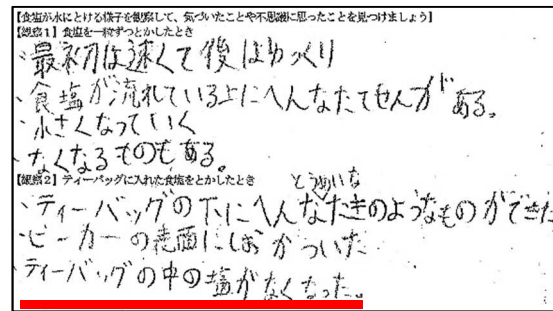 【食塩が水にとける様子を観察して、気づいたことや不思議に思ったことを見つけましょう】
【観察1】食塩を一粒ずつとかしたとき
・最初は速くて後はゆっくり
・食塩が流れている上にへんなたてせんがある。
・小さくなっていく
・なくなるものもある。
【観察2】ティーバッグに入れた食塩をとかしたとき
とうめいな
・ティーバッグの下にへんなたきのようなものができた
・ビーカーの表面にしおがついた
・ティーバッグの中の塩がなくなった。